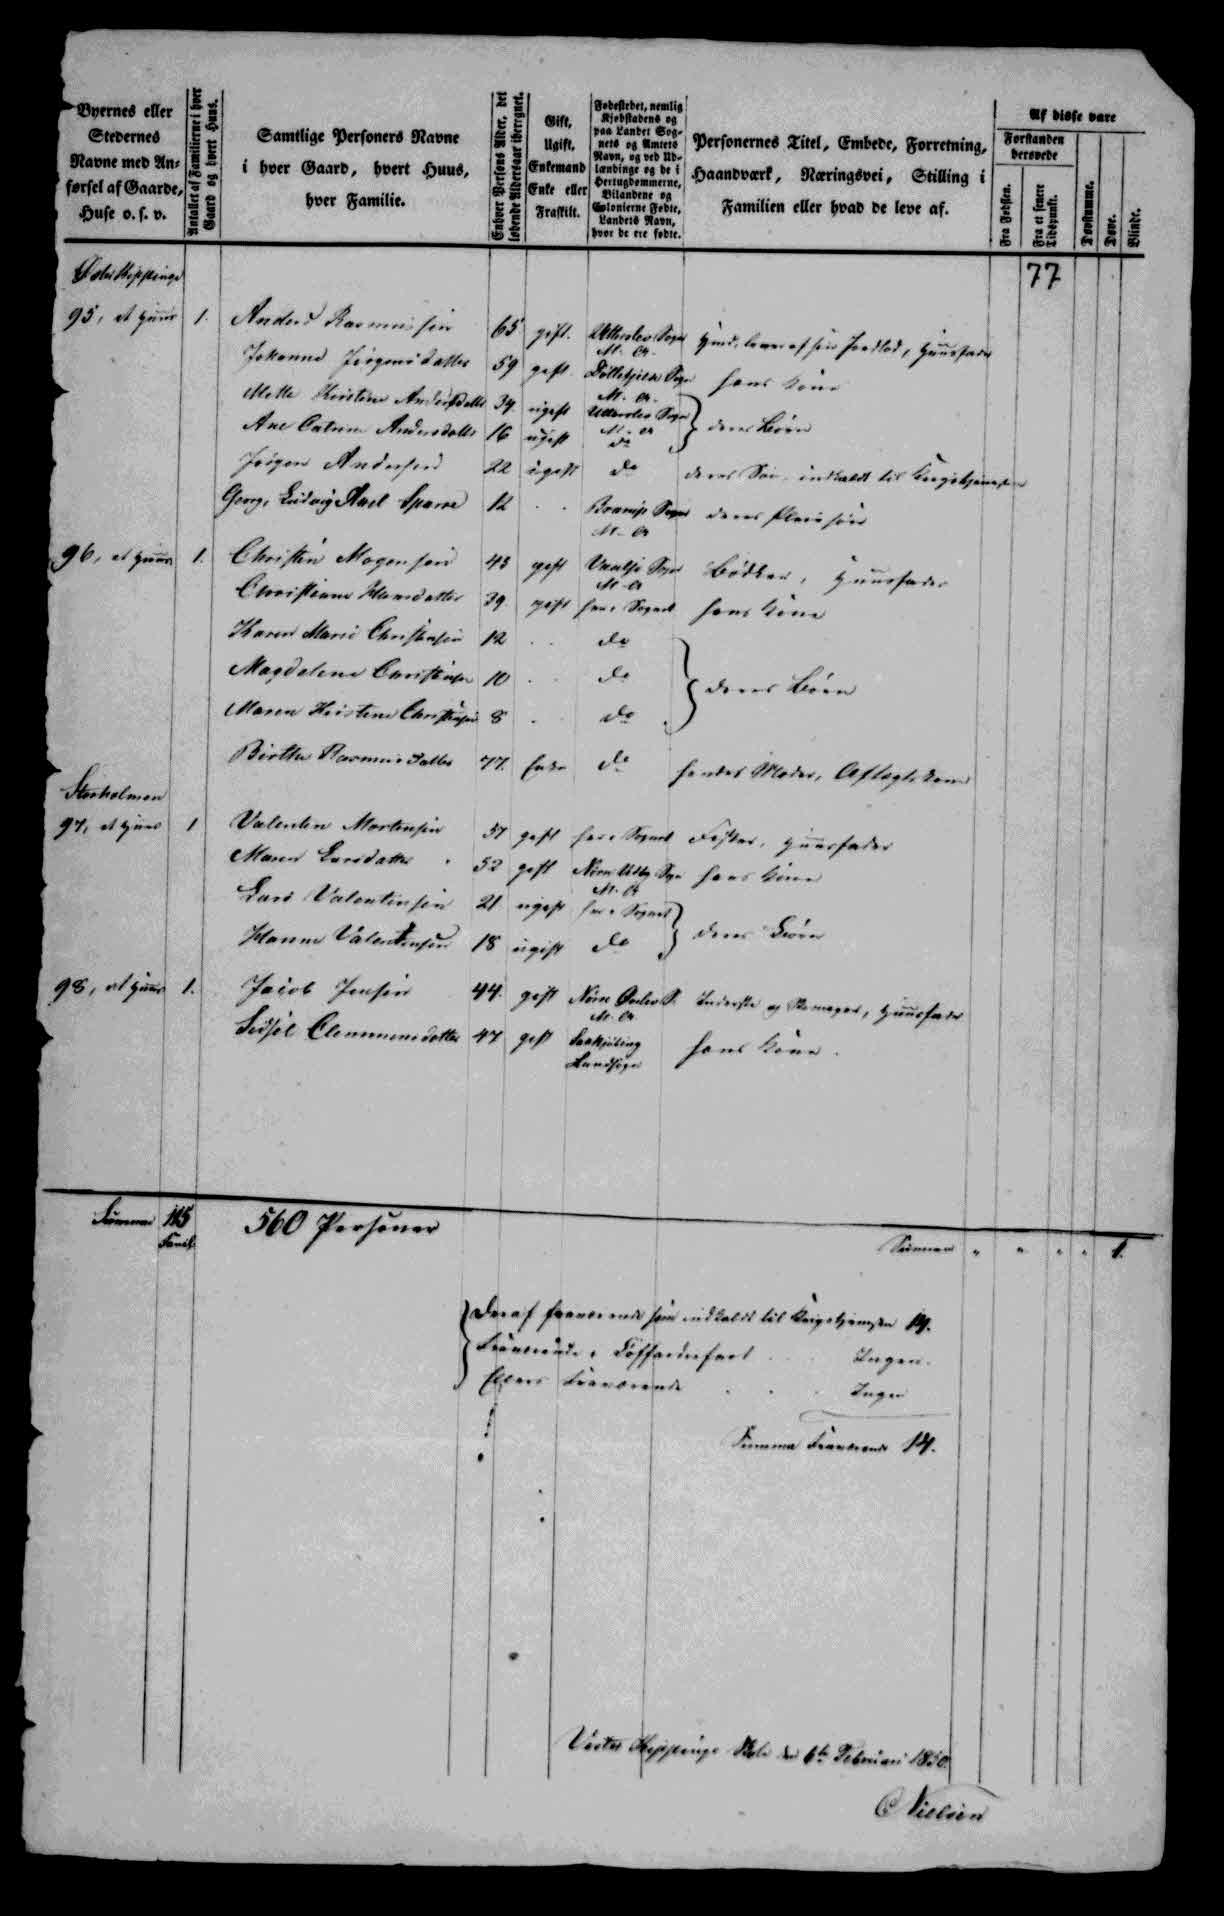 Byernes eller Stedernes Navne med Anførsel af Gaarde, Huse o. s. v.
Antallet af Familierne i hver Gaard og hvert Huus.
Samtlige Personers Navne i hver Gaard, hvert Huus, hver Familie.
Enhver Persons Alder, det løbende Aldersaar iberegnet.
Gift, Ugift, Enkemand Enke eller Fraskilt.
Fødestedet, nemlig Kjøbstadens og paa Landet Sognets og Amtets Navn, og ved Udlændinge og de i Hertugdømmerne, Bilandene og Colonierne Fødte, Landets Navn, hvor de ere fødte.
Personernes Titel, Embede, Forretning, Haandværk, Næringsvei, Stilling i Familien eller hvad de leve af.
Af disse vare
Forstanden berøvede
Fra Fødslen.
Fra et senere Tidspunkt.
Døvstumme.
Døve.
Blinde.
77
95, et Huus 1. Anders Rasmussen 65 gift. Utterslev Sogn M. A. Huusm. lever af sin Jordlod, Huusfader
Johanne Jörgensdatter 59 gift Sogn M. A. hans Kone
Mette Kirstine Andersdatter 34 ugift Utterslev Sogn M. A.
Ane Catrine Andersdatter 16 ugift do } deres Börn
Jörgen Andersen 22 ugift do deres Sön, indkaldt til Krigstjenesten
Georg Ludvig Axel Sparre 12 . . Sogn M. A. deres Pleiesön
96, et Huus 1. Christen Mogensen 43 gift Sogn M. A. Bödker, Huusfader
Christiane Hansdatter 39 gift her i Sognet hans Kone
Karen Marie Christensen 12 . . do
Magdalene Christensen 10 . do } deres Börn
Maren Kirstine Christensen 8 . do
Birthe Rasmusdatter 77. Enke do hendes Moder, Aftægtskone
97, et Huus 1 Valentin Mortensen 57 gift her i Sognet Fisker, Huusfader
Maren Larsdatter 52 gift Sogn M. A. hans Kone
Lars Valentinsen 21 ugift her i Sognet
Hanne Valentinsen 18 ugift do } deres Börn
98, et Huus 1. Jacob Jensen 44. gift Nörre S. M. A. Inderste og Huusfader
Sidsel Clemmensdatter 47 gift Saxkjöbing Landsogn hans Kone.
Summa 105 Famil. 560 Personer
Summa " " " " 1.
Deraf fraværende som indkaldt til Krigstjenesten 14.
Fraværende i Koffardiefart . . Ingen.
Ellers Fraværende . . . Ingen
Summa Fraværende 14.
Vester Kippinge Skole den 6te Februari 1850.
C Nielsen